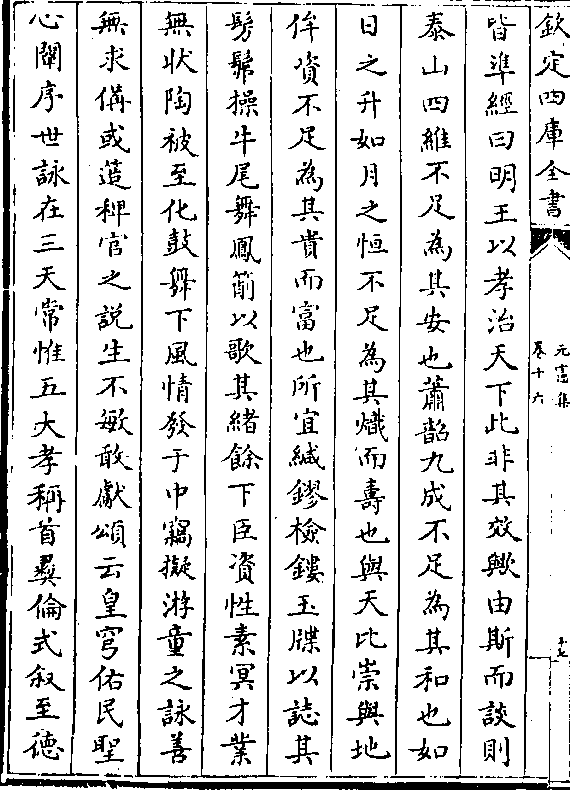 欽定四庫全書
元憲集
卷十六
十七
皆準經曰明王以孝治天下此非其效歟由斯而談則
泰山四維不足為其安也蕭韶九成不足為其和也如
日之升如月之恒不足為其熾而壽也與天比崇與地
侔資不足為其貴而富也所宜緘鏐檢鏤玉牒以誌其
髣髴操牛尾舞鳳簫以歌其緒餘下臣資性素冥才業
無狀陶被至化鼓舞下風情發于中竊擬游童之詠善
無求備或薳稗官之說生不敏敢獻頌云皇穹佑民聖
心闡序世詠在三天常惟五大孝稱首彞倫式叙至德